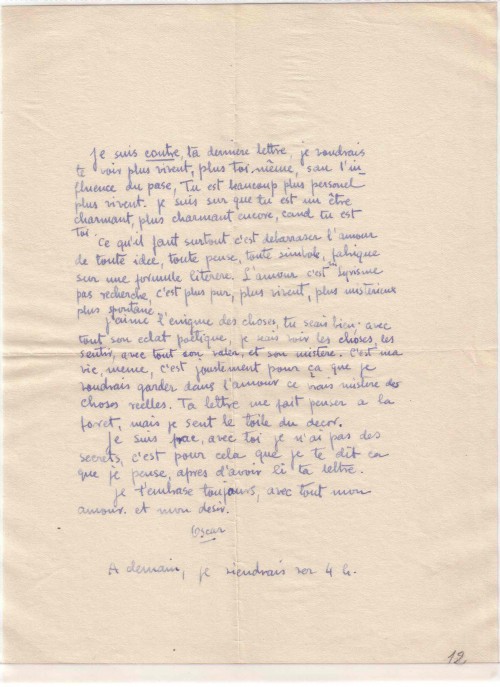 Je suis contre, ta dernière lettre, je voudrais
te voir plus vivent, plus toi-même, san l'in
fluence du pase, Tu est beaucoup plus personel
plus vivent. je suis sur que tu est un être
charmant, plus charmant encore, cand tu est
toi.
Ce qu'il faut surtout c'est debarraser l'amour
de toute idee, toute pense, toute simbole, fabrique
sur une formule literere. L'amour c'est un lyrisme
pas recherche, c'est plus pur, plus vivent, plus misterieux
plus spontane.
J'aime l'enigme des choses, tu seais bien; avec
tout son eclat poetique, je sais voir les choses, les
sentir, avec tout son valeur, et son mistere. C'est ma
vie, meme, c'est joustement pour ça que je
voudrais garder dans l'amour ce vrais mistere des
choses reelles. Ta lettre me fait penser a la
foret, mais je sent le toile du decor.
Je suis frac, avec toi je n'ai pas des
secrets, c'est pour cela que je te dit ca
que je pense, apres d'avoir li ta lettre.
je t'embrase toujours, avec tout mon
amour. et mon desir.
Oscar
A demain, je viendrais ver 4 h.
12